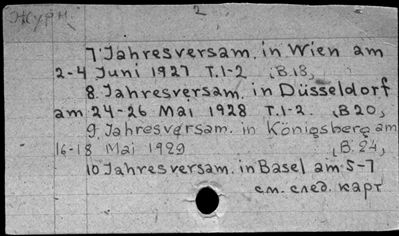 Журн. 2
7 Jahresversam. in Wien am
2-4 Juni 1927 T.1-2 (B.18,)
8. Jahresversam. in Düsseldorf
am 24-26 Mai 1928 T.1-2. (B20,)
9. Jahresversam. in Königsberg am
16-18 Mai 1929 (B.24,)
10 Jahresversam. in Basel am 5-7
см. след. карт